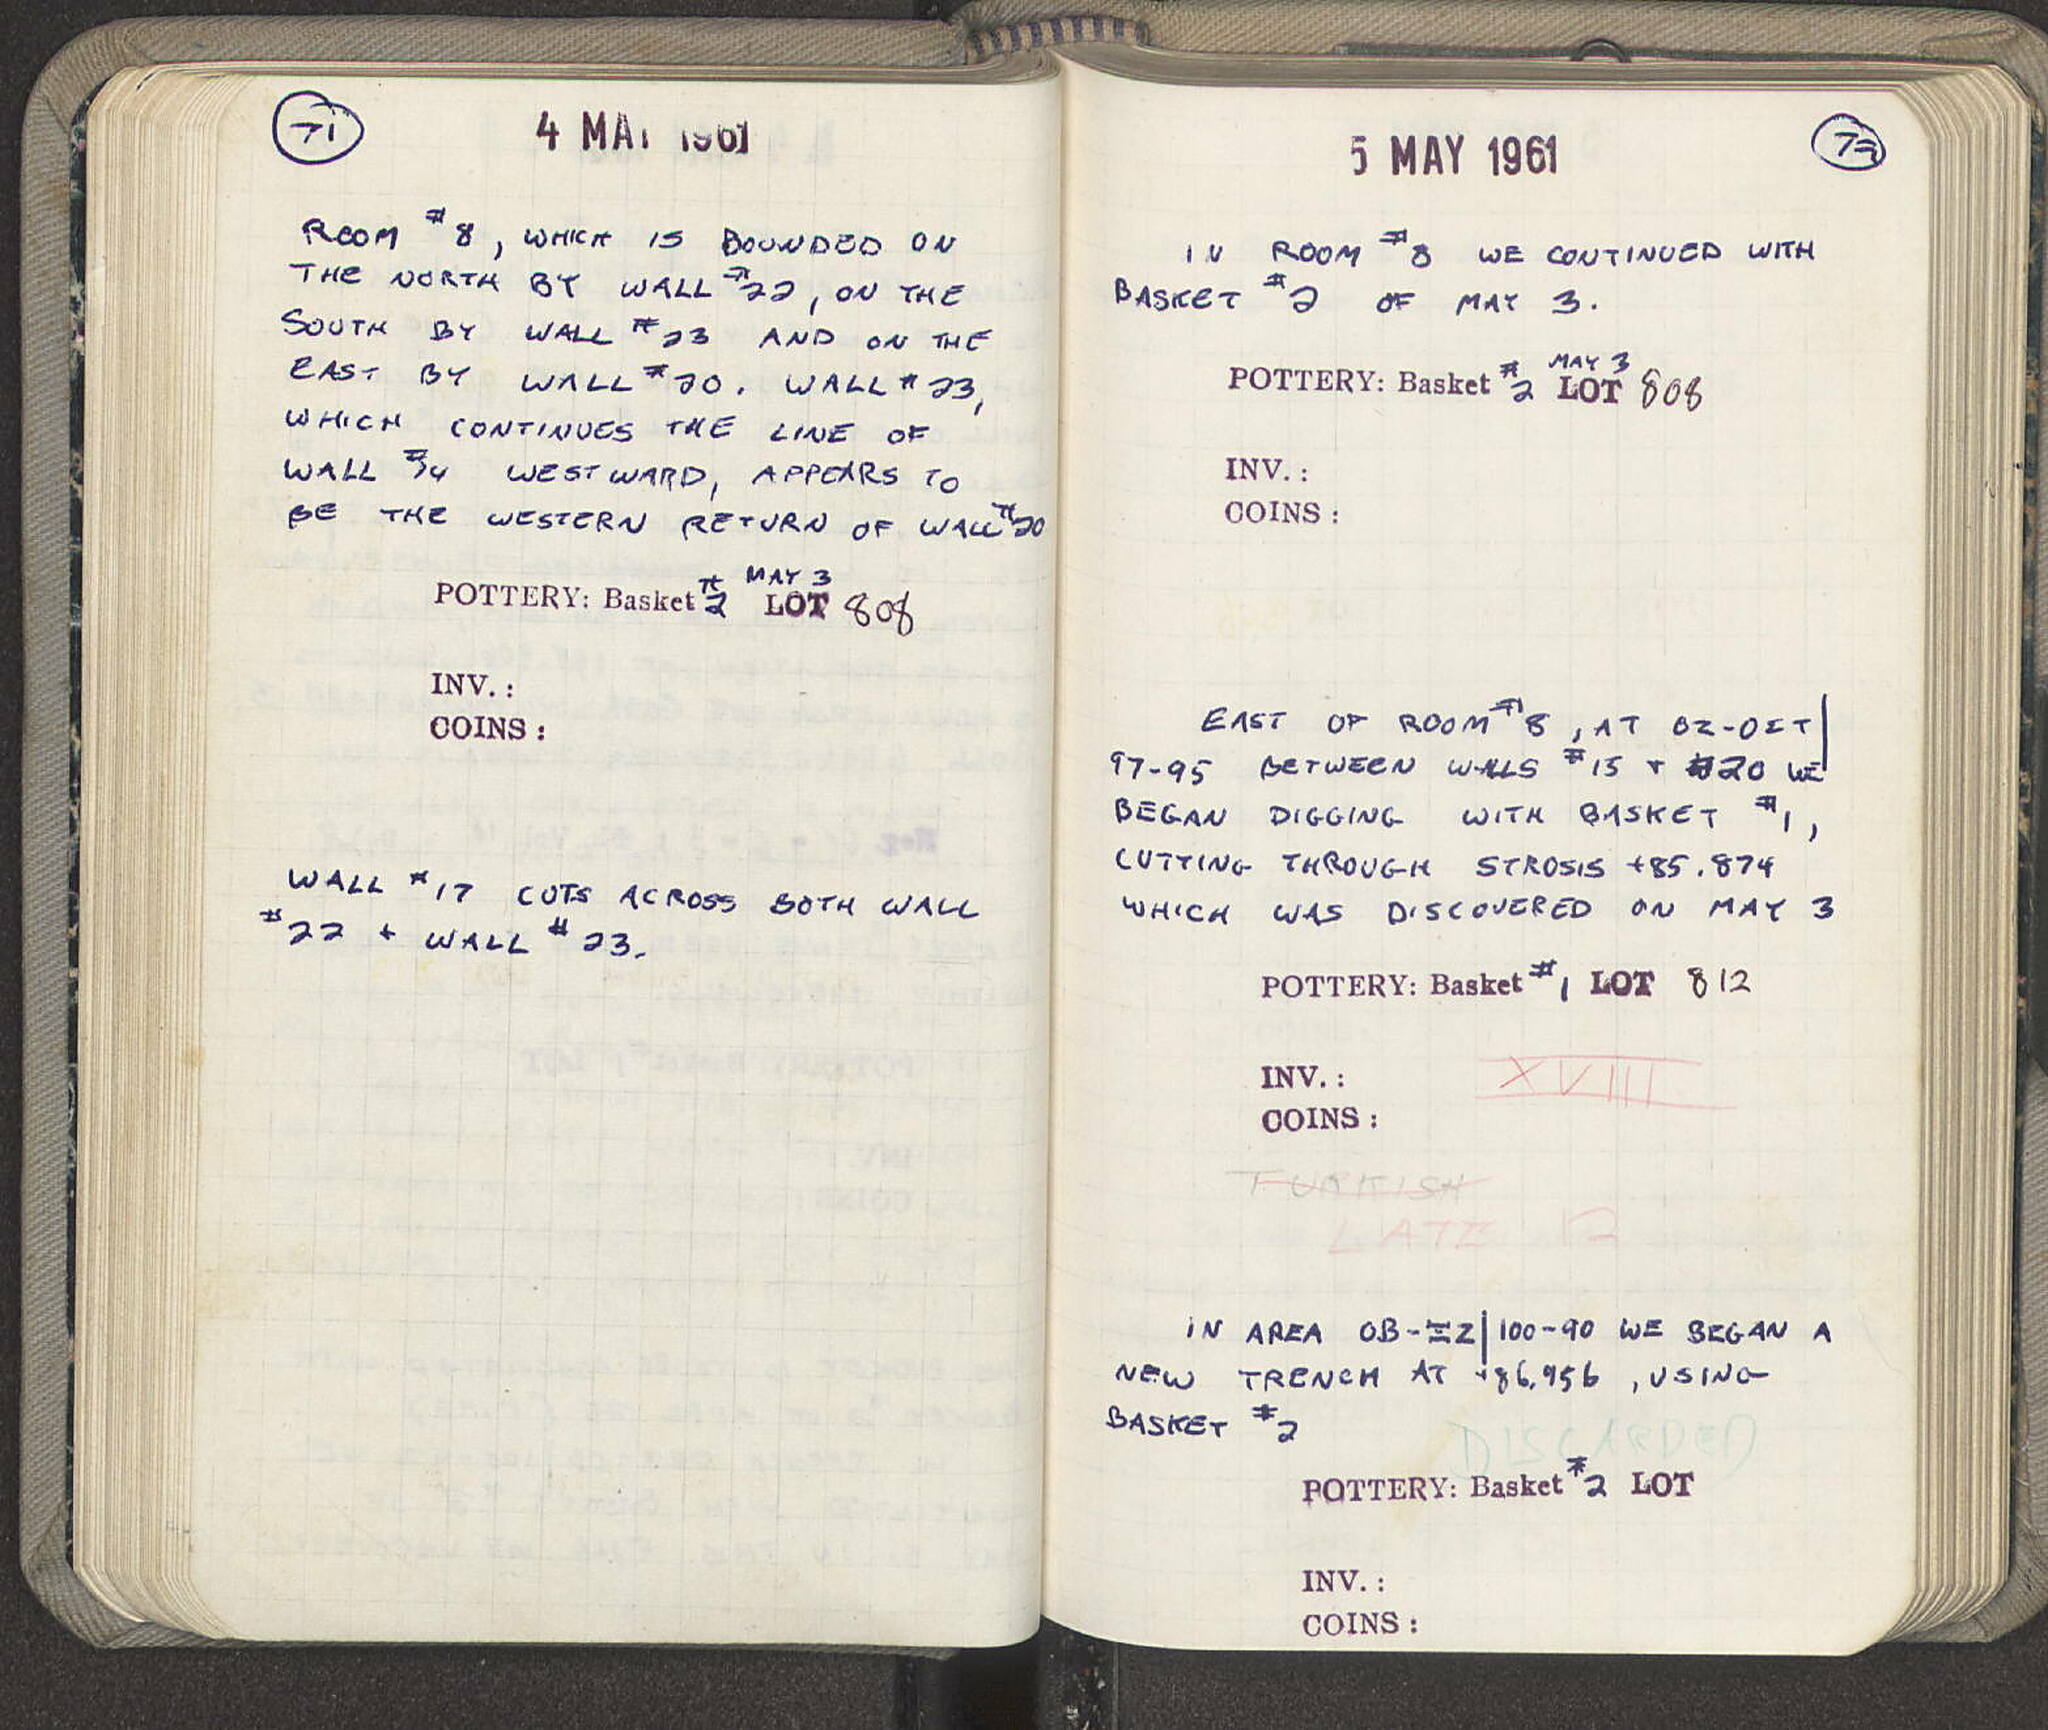 71
4 MAY 1961
ROOM #8, WHICH IS BOUNDED ON
THE NORTH BY WALL #22, ON THE
SOUTH BY WALL #23 AND ON THE
EAST BY WALL #20. WALL #23,
WHICH CONTINUES THE LINE OF
WALL #14 WESTWARD, APPEARS TO
BE THE WESTERN RETURN OF WALL #20
POTTERY: Basket #2 MAY 3 LOT 808
INV.:
COINS:
WALL #17 CUTS ACROSS BOTH WALL
#22 + WALL #23.
72
5 MAY 1961
IN ROOM #8 WE CONTINUED WITH
BASKET #2 OF MAY 3.
POTTERY: Basket #2 MAY 3 LOT 808
INV.:
COINS:
EAST OF ROOM #8, AT
97-95 BETWEEN WALLS #15 + #20 WE
BEGAN DIGGING WITH BASKET #1,
CUTTING THROUGH STROSIS +85.874
WHICH WAS DISCOVERED ON MAY 3
POTTERY: Basket #1 LOT 812
INV.: XVIII
COINS:
TURKISH
LATE R
IN AREA OB-ΞZ|100-90 WE BEGAN A
NEW TRENCH AT +86.956, USING
BASKET #2
DISCARDED
POTTERY: Basket #2 LOT
INV.:
COINS: